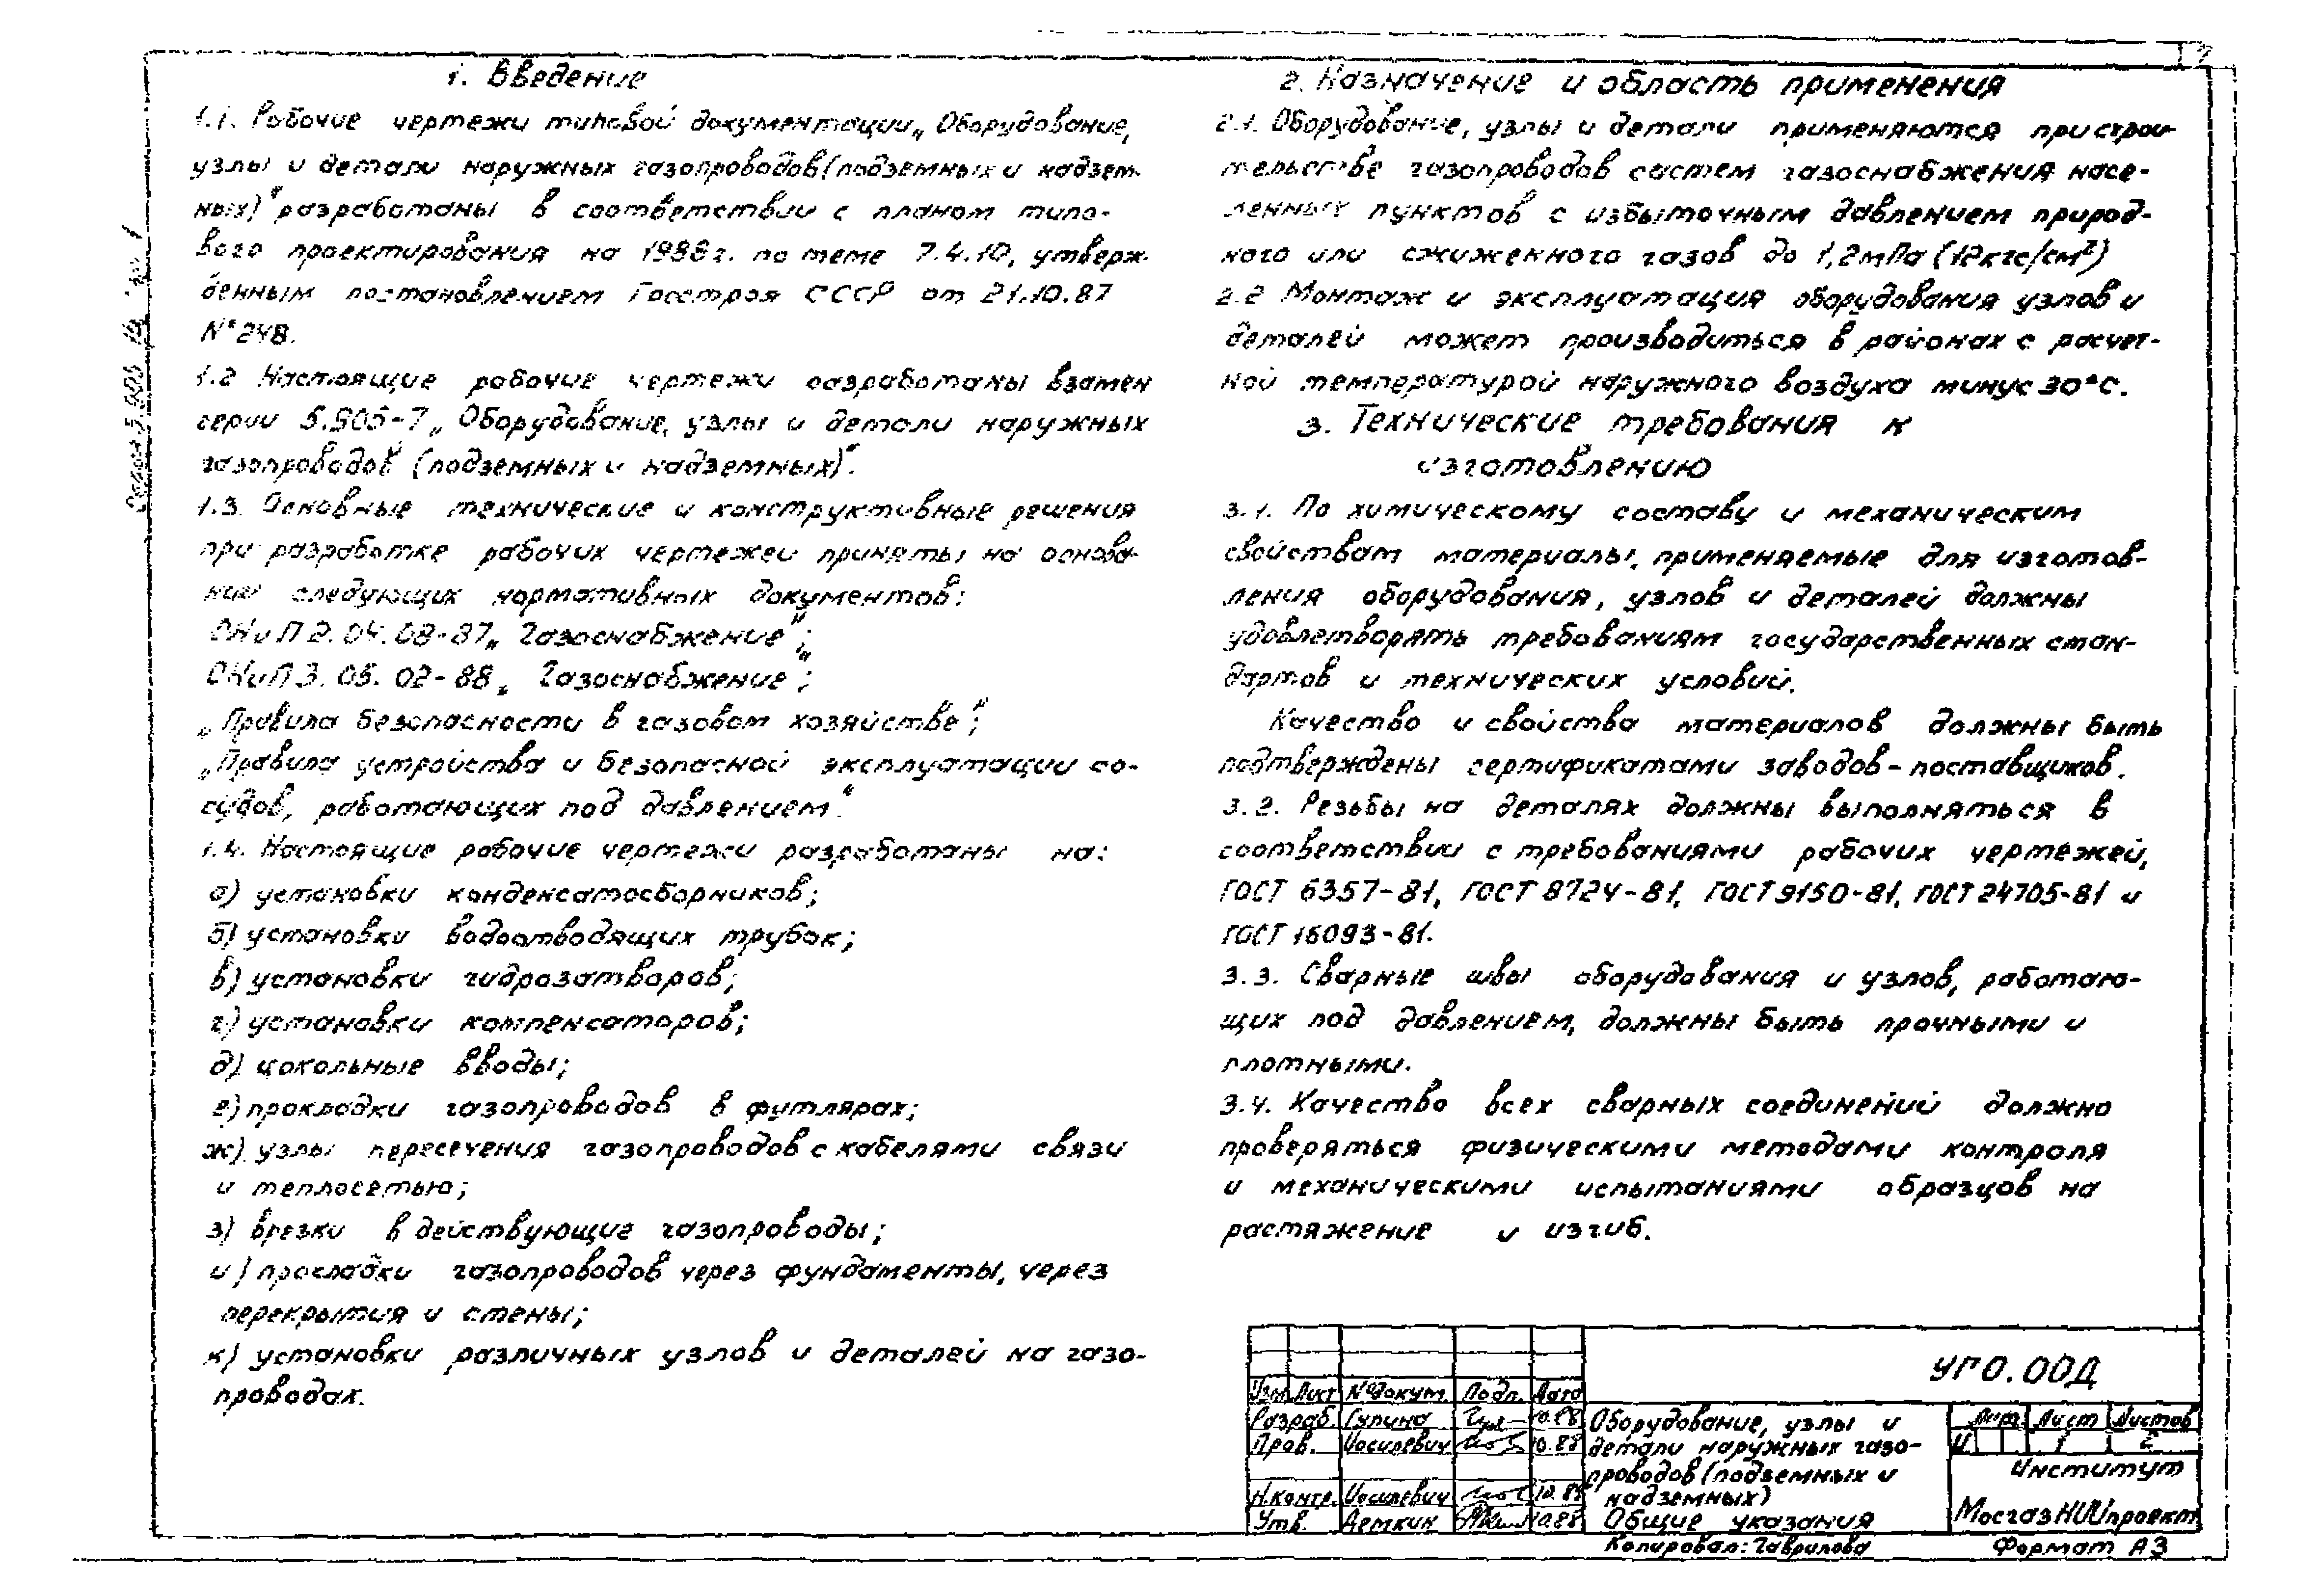 1. Введение
1.1. Рабочие чертежи типовой документации „Оборудование,
узлы и детали наружных газопроводов (подземных и надзем-
ных)“ разработаны в соответствии с планом типо-
вого проектирования на 1988г. по теме 7.4.10, утверж-
денным постановлением Госстроя СССР от 21.10.87
№248.
1.2 Настоящие рабочие чертежи разработаны взамен
серии 5.905-7 „Оборудование, узлы и детали наружных
газопроводов (подземных и надземных)“.
1.3. Основные технические и конструктивные решения
при разработке рабочих чертежей приняты на основа-
нии следующих нормативных документов:
СНиП 2.04.08-87 „Газоснабжение“;
СНиП 3.05.02-88 „Газоснабжение“;
„Правила безопасности в газовом хозяйстве“;
„Правила устройства и безопасной эксплуатации со-
судов, работающих под давлением“.
1.4. Настоящие рабочие чертежи разработаны на:
а) установки конденсатосборников;
б) установки водоотводящих трубок;
в) установки гидрозатворов;
г) установки компенсаторов;
д) цокольные вводы;
е) прокладки газопроводов в футлярах;
ж) узлы пересечения газопроводов с кабелями связи
и теплосетью;
з) врезки в действующие газопроводы;
и) прокладки газопроводов через фундаменты, через
перекрытия и стены;
к) установки различных узлов и деталей на газо-
проводах.
2. Назначение и область применения
2.1. Оборудование, узлы и детали применяются при строи-
тельстве газопроводов систем газоснабжения насе-
ленных пунктов с избыточным давлением природ-
ного или сжиженного газов до 1,2мПа (12кгс/см²)
2.2 Монтаж и эксплуатация оборудования узлов и
деталей может производиться в районах с расчет-
ной температурой наружного воздуха минус 30°С.
3. Технические требования к
изготовлению
3.1. По химическому составу и механическим
свойствам материалы, применяемые для изготов-
ления оборудования, узлов и деталей должны
удовлетворять требованиям государственных стан-
дартов и технических условий.
Качество и свойства материалов должны быть
подтверждены сертификатами заводов-поставщиков.
3.2. Резьбы на деталях должны выполняться в
соответствии с требованиями рабочих чертежей,
ГОСТ 6357-81, ГОСТ 8724-81, ГОСТ 9150-81, ГОСТ 24705-81 и
ГОСТ 16093-81.
3.3. Сварные швы оборудования и узлов, работаю-
щих под давлением, должны быть прочными и
плотными.
3.4. Качество всех сварных соединений должно
проверяться физическими методами контроля
и механическими испытаниями образцов на
растяжение и изгиб.
УГ0.00Д
Изм. Лист №докум. Подп. Дата
Разраб. Гулина 10.88
Пров. Иосилевич 10.88
Н.контр. Иосилевич 10.88
Утв. Деткин 10.88
Оборудование, узлы и
детали наружных газо-
проводов (подземных и
надземных)
Общие указания
Лит. Лист Листов
И 1 2
Институт
МосгазНИИпроект
Копировал: Гаврилова Формат А3